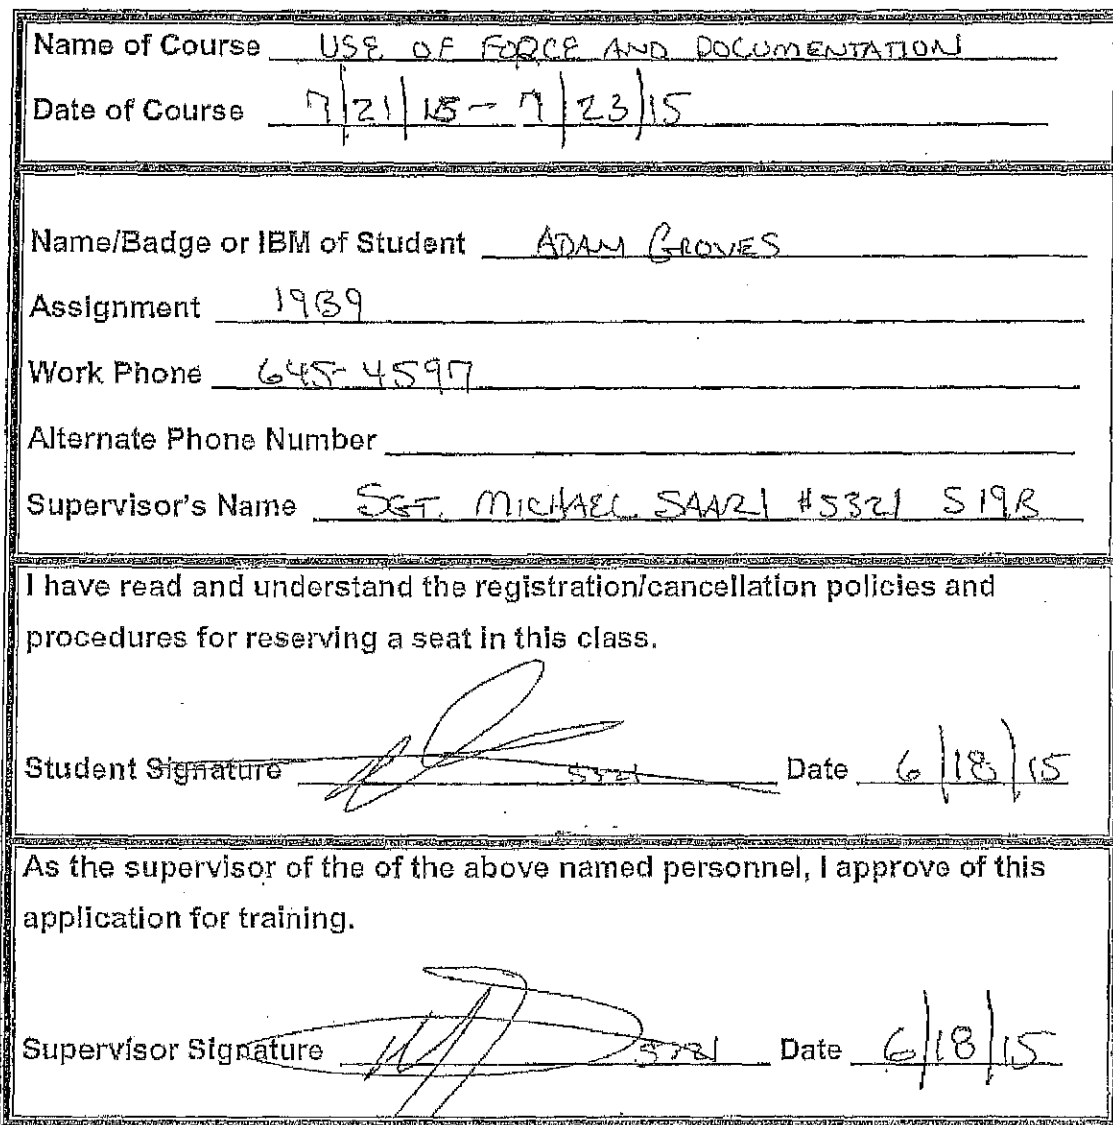 Name of Course USE OF FORCE AND DOCUMENTATION
Date of Course 7/21/15 - 7/23/15
Name/Badge or IBM of Student ADAM GROVES
Assignment 19B9
Work Phone 645-4597
Alternate Phone Number
Supervisor's Name SGT. MICHAEL SAARI #5321 S19B
I have read and understand the registration/cancellation policies and
procedures for reserving a seat in this class.
Student Signature 5321 Date 6/18/15
As the supervisor of the of the above named personnel, I approve of this
application for training.
Supervisor Signature 5321 Date 6/18/15